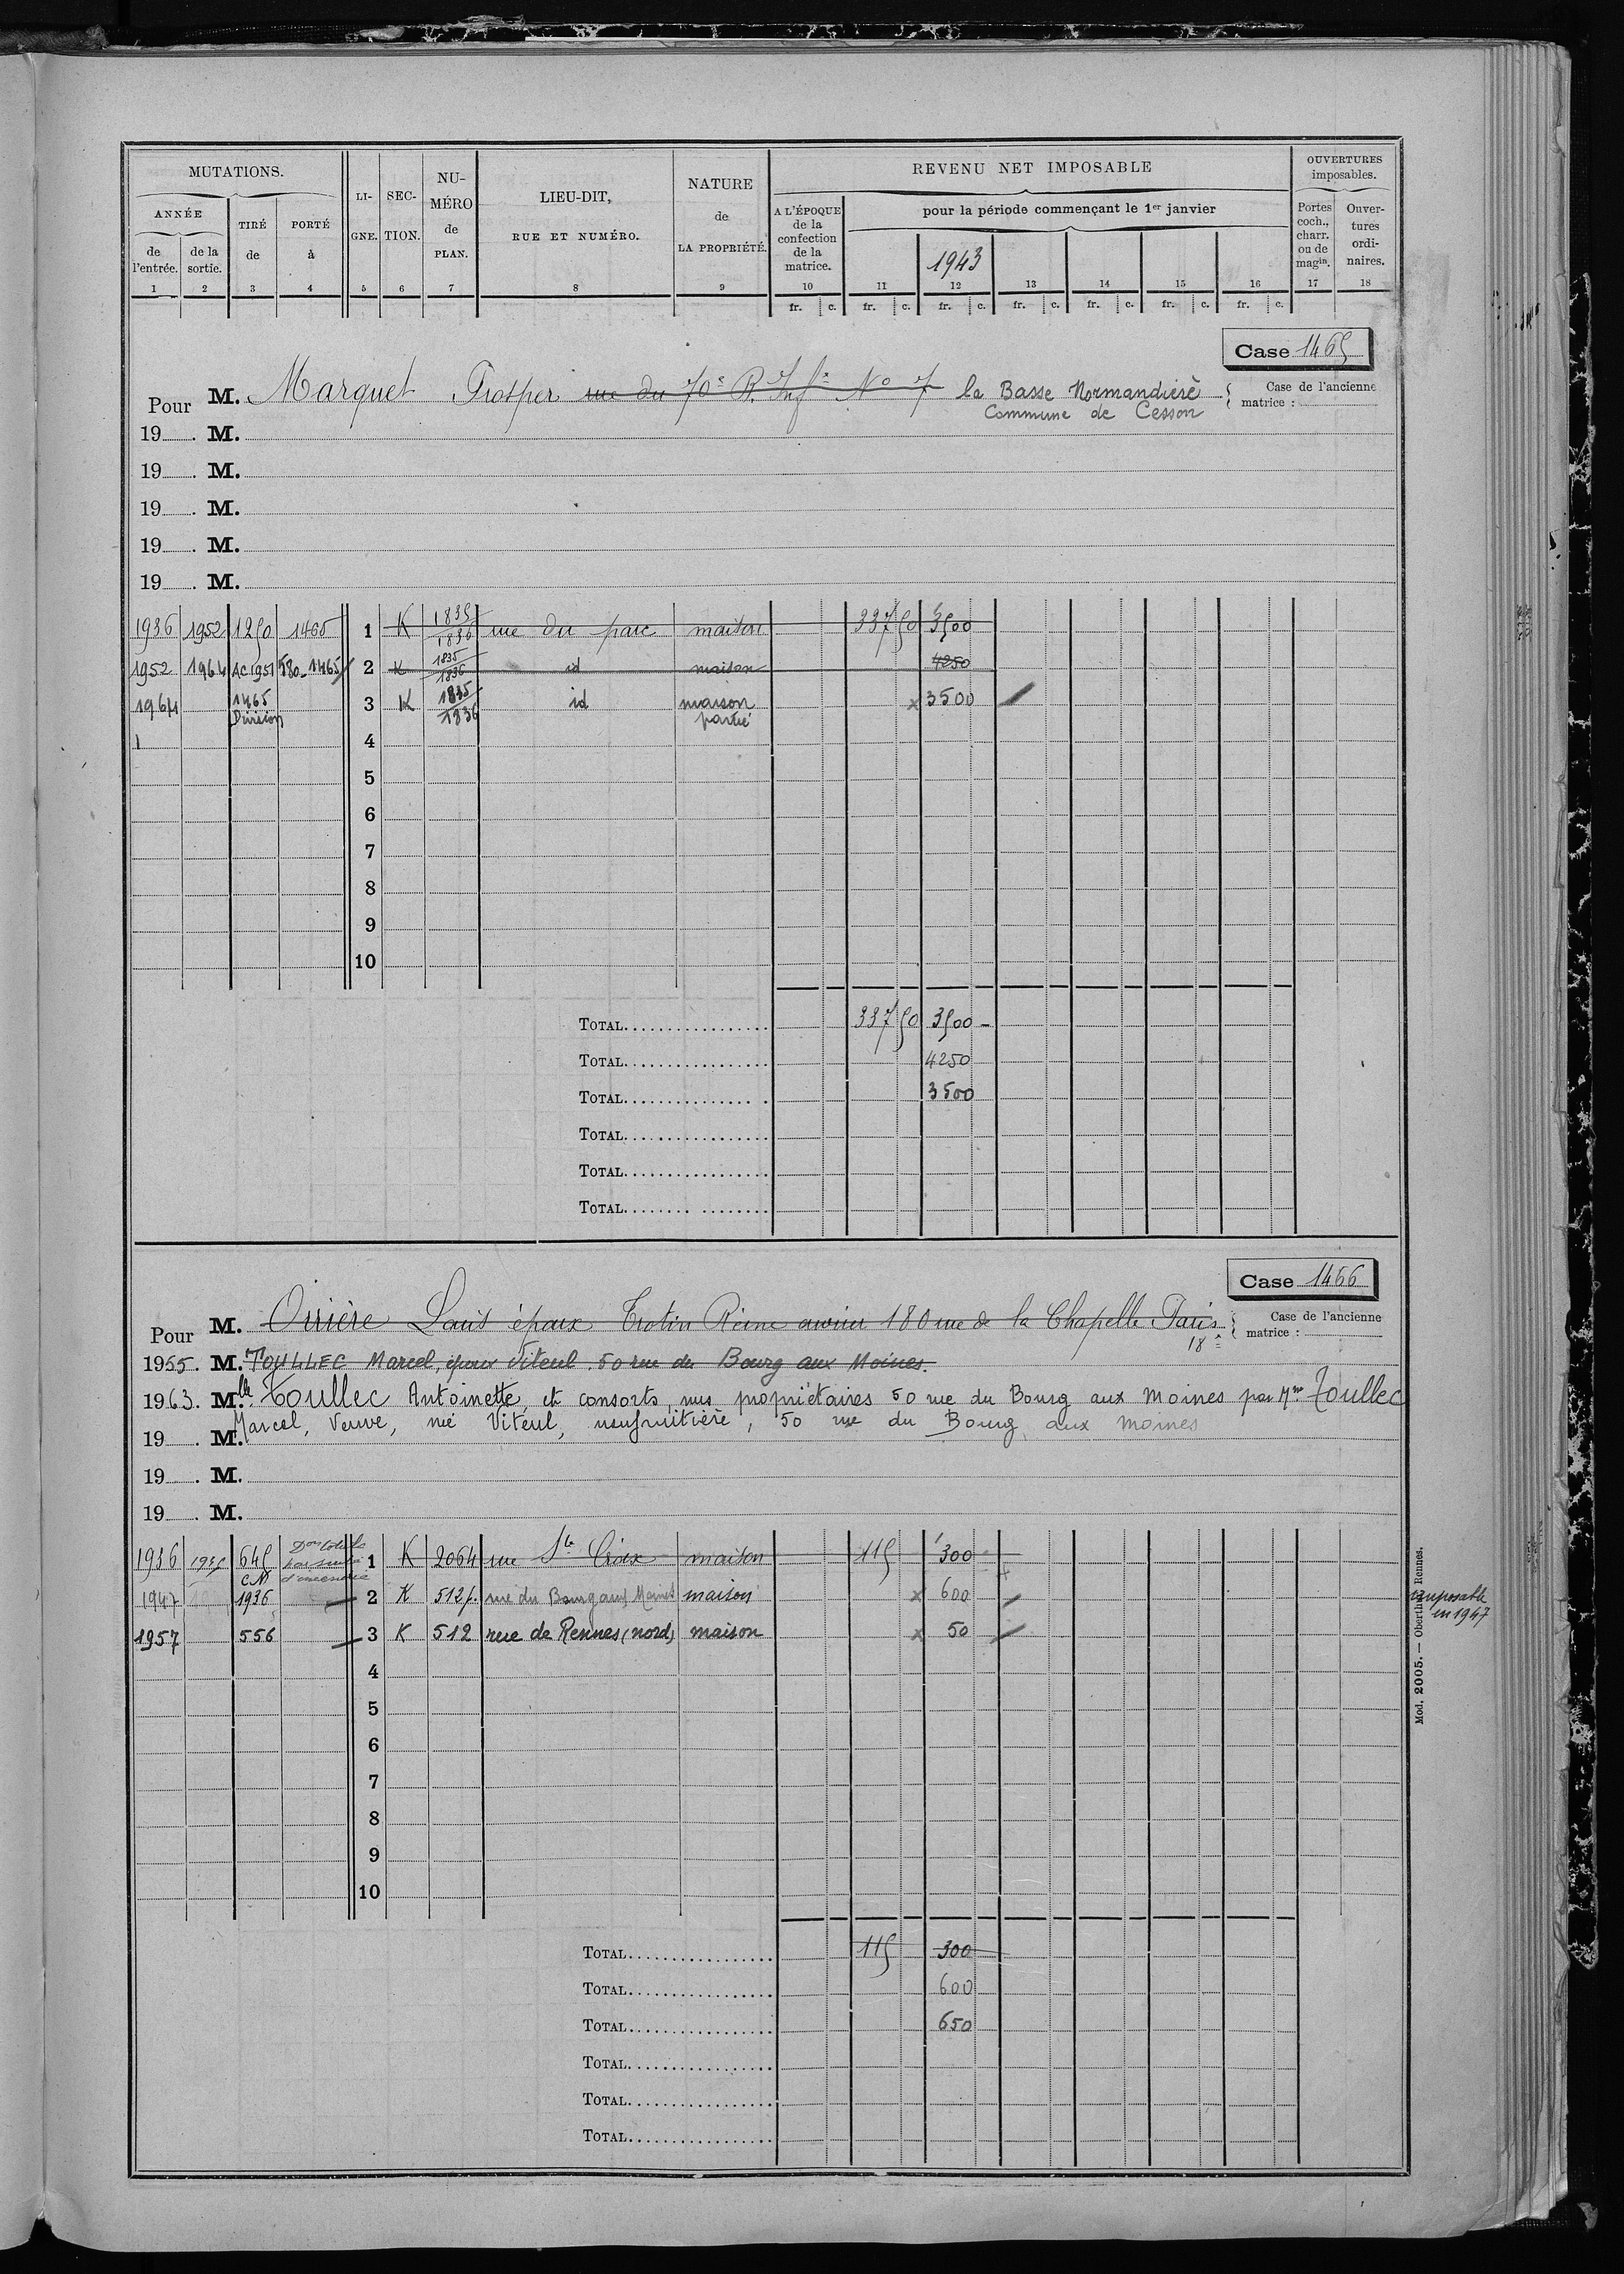 MUTATIONS.
ANNÉE
de l'entrée.
de la sortie.
TIRÉ de
PORTÉ à
LI-GNE.
SEC-TION.
NU-MÉRO de PLAN.
LIEU-DIT,
RUE ET NUMÉRO.
NATURE de LA PROPRIÉTÉ.
REVENU NET IMPOSABLE
A L'ÉPOQUE de la confection de la matrice.
pour la période commençant le 1er janvier
1943
OUVERTURES imposables.
Portes coch., charr. ou de magin.
Ouver-tures ordi-naires.
1 2 3 4 5 6 7 8 9 10 11 12 13 14 15 16 17 18
fr. c. fr. c. fr. c. fr. c. fr. c. fr. c. fr. c.
Case 1465
Pour M. Marquet Prosper rue du 70e R. Infie No 7 la Basse Normandière
Commune de Cesson
Case de l'ancienne matrice :
19 . M.
19 . M.
19 . M.
19 . M.
19 . M.
1936 1952 1250 1465 1 K 1835/1836 rue du parc maison 337 50 3500
1952 1964 AC1951 580-1465 2 K 1835/1836 id maison 4250
1964 1465 Division 3 K 1835/1836 id maison partie x 3500
4
5
6
7
8
9
10
TOTAL 337 50 3500 -
TOTAL 4250
TOTAL 3500
TOTAL
TOTAL
TOTAL
Case 1466
Pour M. Orrière Louis époux Trotin Reine ouvrier 180 rue de la Chapelle Paris 18e
Case de l'ancienne matrice :
1955. M. TOULLEC Marcel, époux Viteul 50 rue du Bourg aux Moines.
1963. Mlle Toullec Antoinette, et consorts, nus propriétaires 50 rue du Bourg aux Moines par Mme Toullec
Marcel, Veuve, née Viteul, usufruitière, 50 rue du Bourg aux moines
19 . M.
19 . M.
19 . M.
1936 645 Don totale par suite d'incendie 1 K 2064 rue Ste Croix maison 115 300
1947 CN 1936 2 K 512p. rue du Bourg aux Moines maison x 600
imposable en 1947
1957 556 3 K 512 rue de Rennes (nord) maison x 50
4
5
6
7
8
9
10
TOTAL 115 300
TOTAL 600
TOTAL 650
TOTAL
TOTAL
TOTAL
Mod. 2005. — Oberthur Rennes.